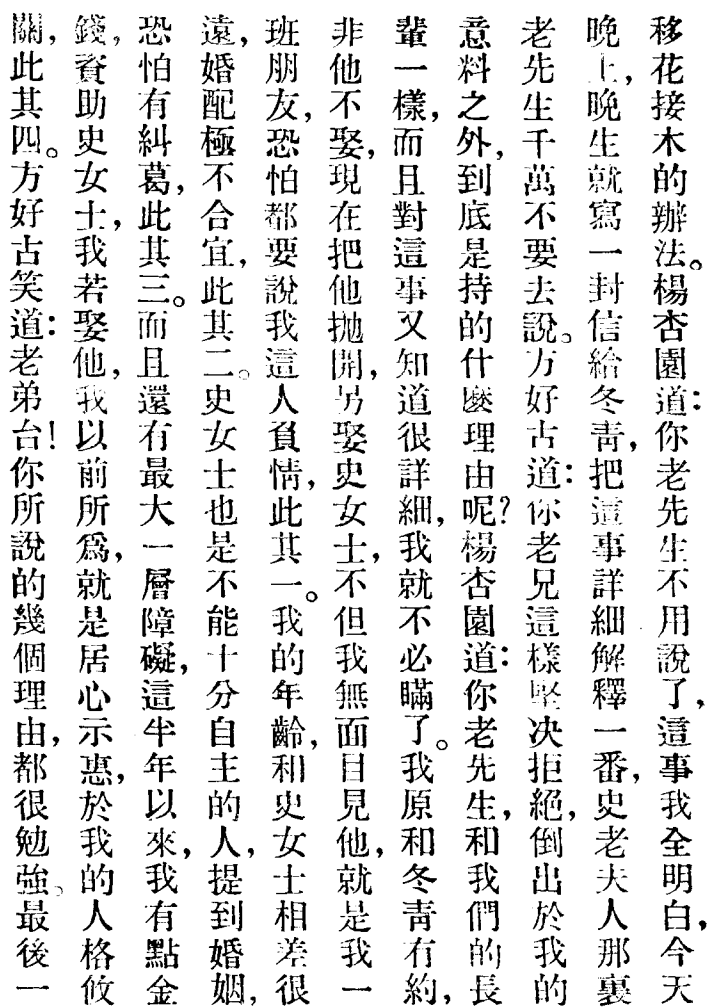 移花接木的辦法。楊杏園道：你老先生不用說了，這事我全明白，今天
晚上，晚生就寫一封信給冬靑，把這事詳細解釋一番，史老夫人那裏
老先生千萬不要去說。方好古道：你老兄這樣堅決拒絕，倒出於我的
意料之外，到底是持的什麽理由呢？楊杏園道：你老先生，和我們的長
輩一樣，而且對這事又知道很詳細，我就不必瞞了。我原和冬靑有約，
非他不娶，現在把他拋開，另娶史女士，不但我無面目見他，就是我一
班朋友，恐怕都要說我這人負情，此其一。我的年齡，和史女士相差很
遠，婚配極不合宜，此其二。史女士也是不能十分自主的人，提到婚姻，
恐怕有糾葛，此其三。而且還有最大一層障礙，這半年以來，我有點金
錢，資助史女士，我若娶他，我以前所爲，就是居心示惠，於我的人格攸
關，此其四。方好古笑道：老弟台！你所說的幾個理由，都很勉強。最後一